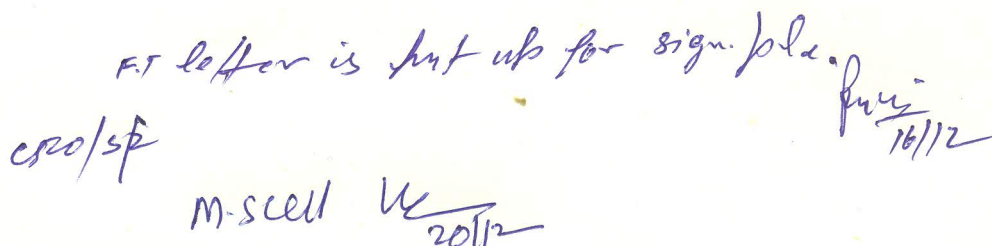 F.T letter is put up for sign. pls.
16/12
CRO/SP
M.S Cell
20/12